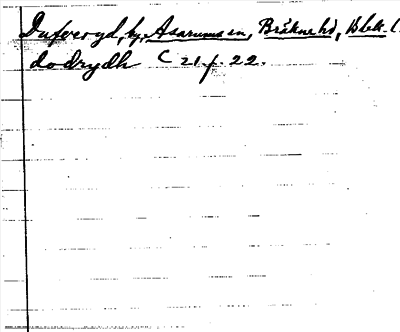 Dufveryd, by, Asarums sn, Bräkne hd, Blek. l.
dodrydh C 21 f. 22.